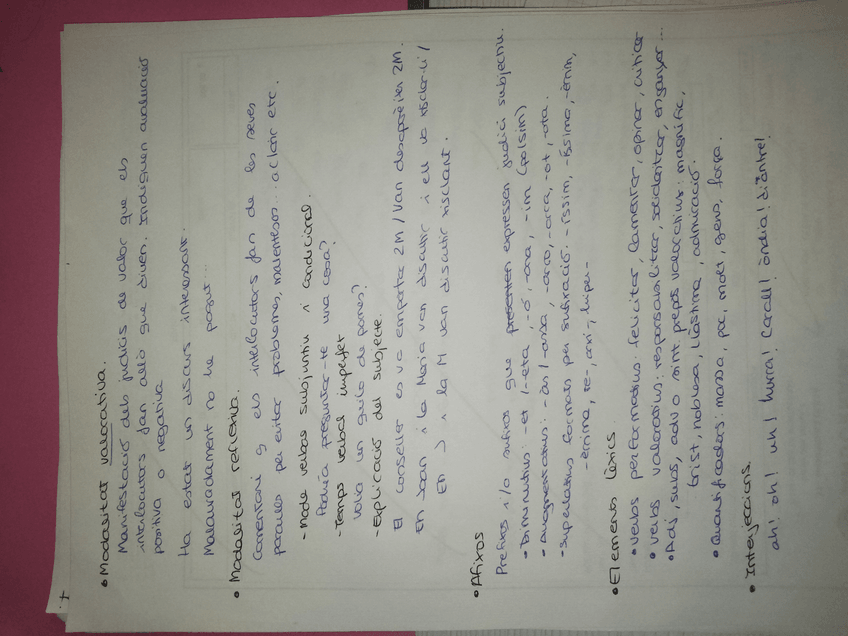 • Modalitat valorativa.
Manifestació dels judicis de valor que els
interlocutors fan allò que diuen. Indiquen avaluació
positiva o negativa
Ha estat un discurs interessant.
Malauradament no he pogut...
• Modalitat refletiva.
Comentari q els interlocutors fan de les seves
paraules per evitar problemes, malentesos... aclarir etc.
- Mode verbas subjuntiu i condicional.
Podria preguntar-te una cosa?
- Temps verbal imperfet
volia un quilo de pomes?
- Explicació del subjecte.
El conseller es va emportar 2M / Van desaparèixer 2M.
En Joan i la Maria van discutir i ell va
En J i la M van discutir
• Afixos
Prefixos i/o sufixos que presenten expressen judici subjectiu.
• Diminutius: -et /-eta, -ó, -ona, -im (polsim)
• Augmentatius: -às /-assa, -arro, -arra, -ot, -ota.
• Superlatius formats per sufixació: -íssim, -íssima, -èrrim,
-èrrima, re-, arxi-, hiper-
• Elements lèxics
• Verbs performatius: felicitar, lamentar, opinar, criticar
• Verbs valoratius: responsabilitzar, solidaritzar, enganyar...
• Adj, subs, adv o sint prepos valoratius: magnífic,
trist, noblesa, llàstima, admiració.
• Quantificadors: massa, poc, molt, gens, força.
• Interjeccions.
ah! oh! uh! hurra! Carall! òndia! diantre!